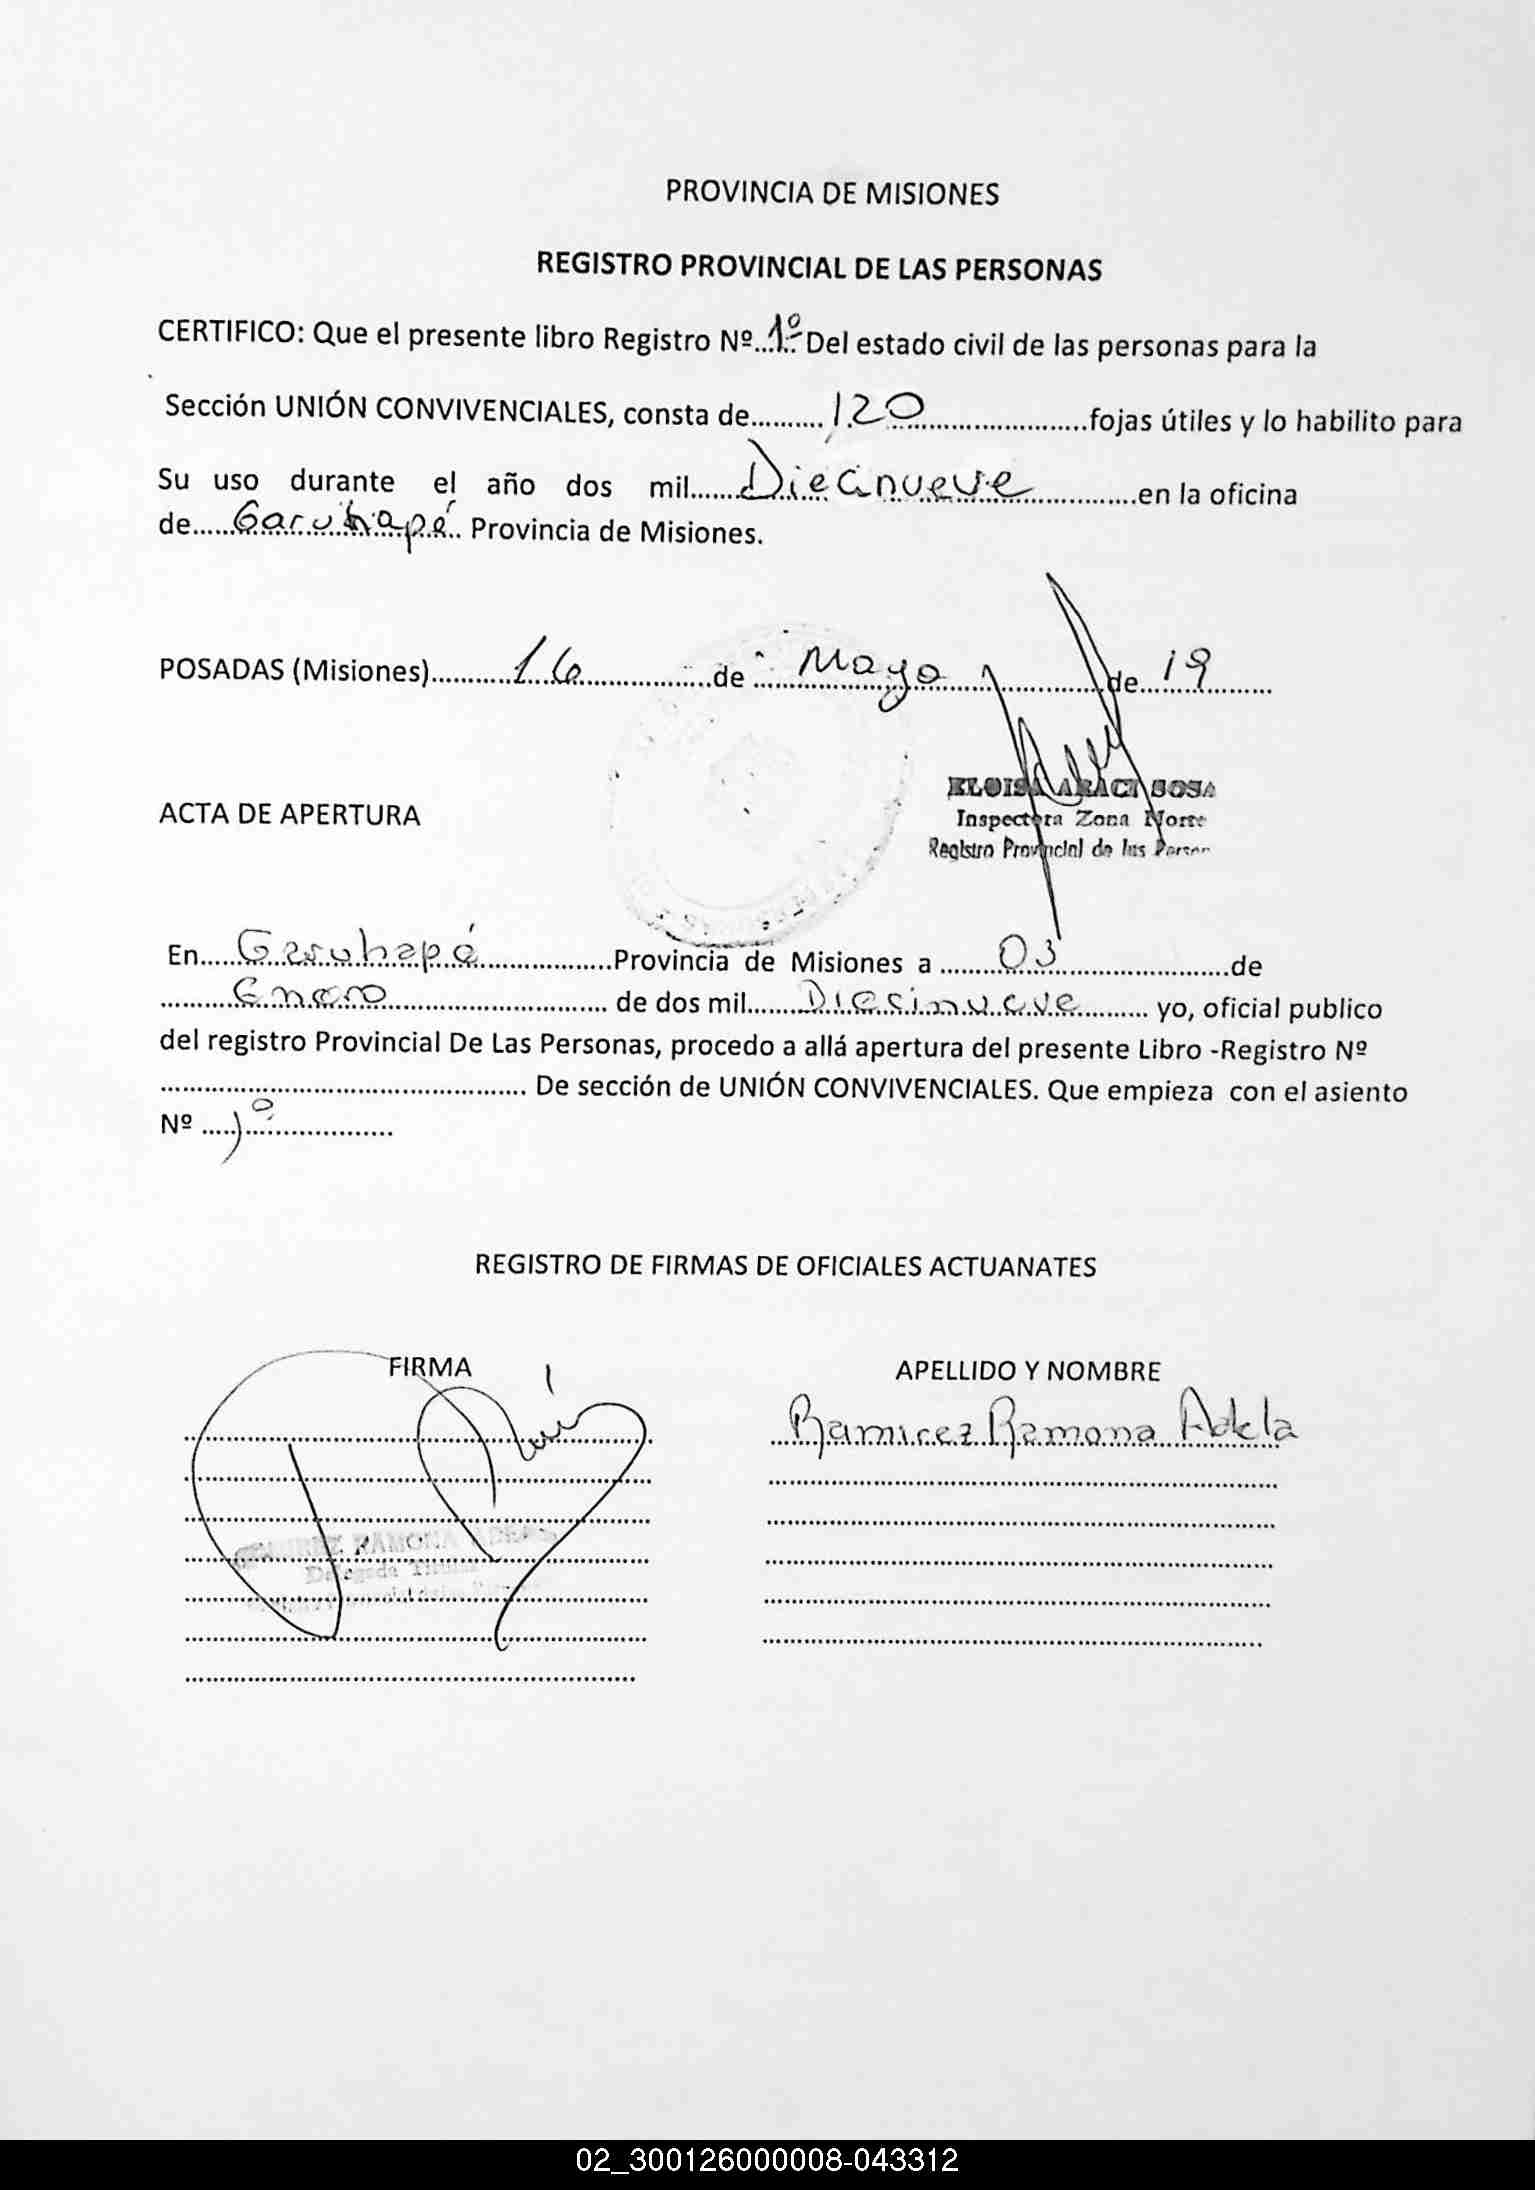 PROVINCIA DE MISIONES
REGISTRO PROVINCIAL DE LAS PERSONAS
CERTIFICO: Que el presente libro Registro Nº...1º Del estado civil de las personas para la
Sección UNIÓN CONVIVENCIALES, consta de.......... 120 ........................fojas útiles y lo habilito para
Su uso durante el año dos mil....... Diecinueve ...............en la oficina
de..... Garuhapé .. Provincia de Misiones.
POSADAS (Misiones)........... 16 .................de ... Mayo ..................de..... 19 .........
ELOISA ARACI SOSA
Inspectora Zona Norte
Registro Provincial de las Person
ACTA DE APERTURA
En..... Garuhapé .................Provincia de Misiones a ....... 03 .......................de
......... Enero ........................... de dos mil....... Diesinueve ......... yo, oficial publico
del registro Provincial De Las Personas, procedo a allá apertura del presente Libro -Registro Nº
................................................ De sección de UNIÓN CONVIVENCIALES. Que empieza con el asiento
Nº ..... 1º ....................
REGISTRO DE FIRMAS DE OFICIALES ACTUANATES
FIRMA APELLIDO Y NOMBRE
Ramirez Ramona Adela
RAMONA
Delegada Titular
02_300126000008-043312